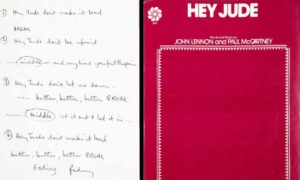 ① Hey Jude don't make it bad.
BREAK
② Hey Jude don't be afraid
middle and any time you feel the pain
③ Hey Jude don't let me down
better, better, better BREAK.
middle let it out & let it in ...
④ Hey Jude don't make it bad
better, better, better BREAK
Ending fading
HEY JUDE
Words and Music by
JOHN LENNON and PAUL McCARTNEY